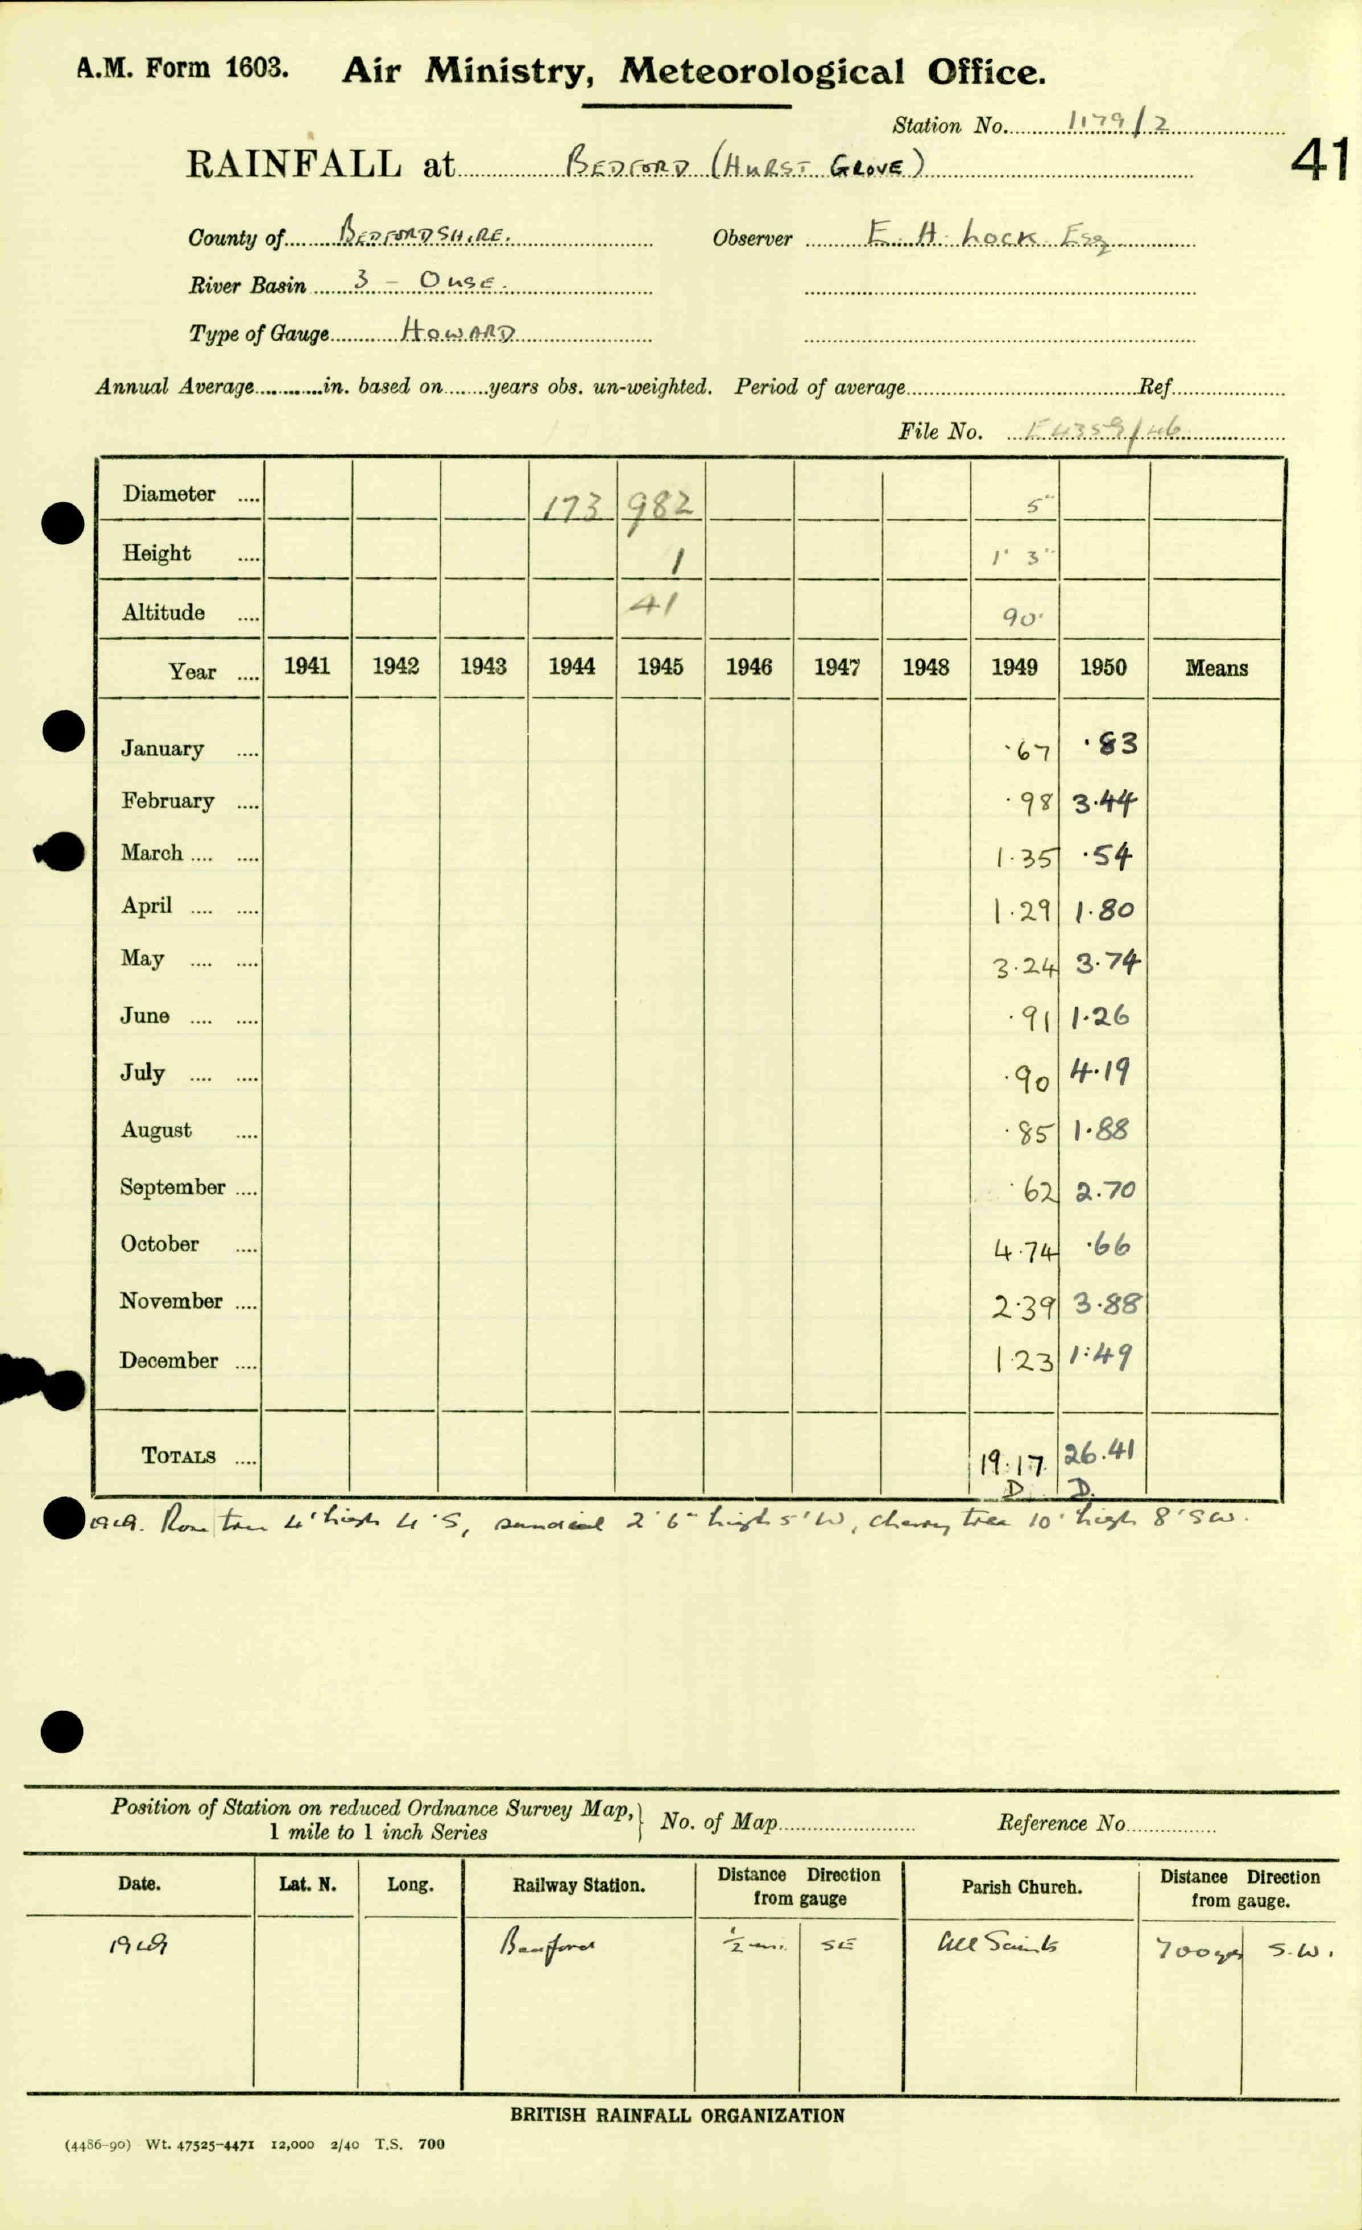 A.M. Form 1603. Air Ministry, Meteorological Office.
Station No. 1179/2
RAINFALL at BEDFORD (HURST GROVE)
41
County of BEDFORDSHIRE. Observer E. H. Lock Esq
River Basin 3 - OUSE.
Type of Gauge HOWARD
Annual Average in. based on years obs. un-weighted. Period of average Ref
File No. E4359/46
Diameter .... 173 982 5"
Height .... 1 1' 3"
Altitude .... 41 90'
Year .... 1941 1942 1943 1944 1945 1946 1947 1948 1949 1950 Means
January .... ·67 ·83
February .... ·98 3·44
March .... .... 1·35 ·54
April .... .... 1·29 1·80
May .... .... 3·24 3·74
June .... .... ·91 1·26
July .... .... ·90 4·19
August .... ·85 1·88
September .... ·62 2.70
October .... 4·74 ·66
November .... 2·39 3·88
December .... 1·23 1·49
TOTALS .... 19·17 26.41
D D.
1949. Rose tree 4' high 4'S, sundial 2'6" high 5'W, cherry tree 10' high 8'SW.
Position of Station on reduced Ordnance Survey Map, 1 mile to 1 inch Series } No. of Map Reference No
Date. Lat. N. Long. Railway Station. Distance Direction from gauge Parish Church. Distance Direction from gauge.
1949 Bedford ½ mi. SE All Saints 700yds S.W.
BRITISH RAINFALL ORGANIZATION
(4486-90) Wt. 47525-4471 12,000 2/40 T.S. 700